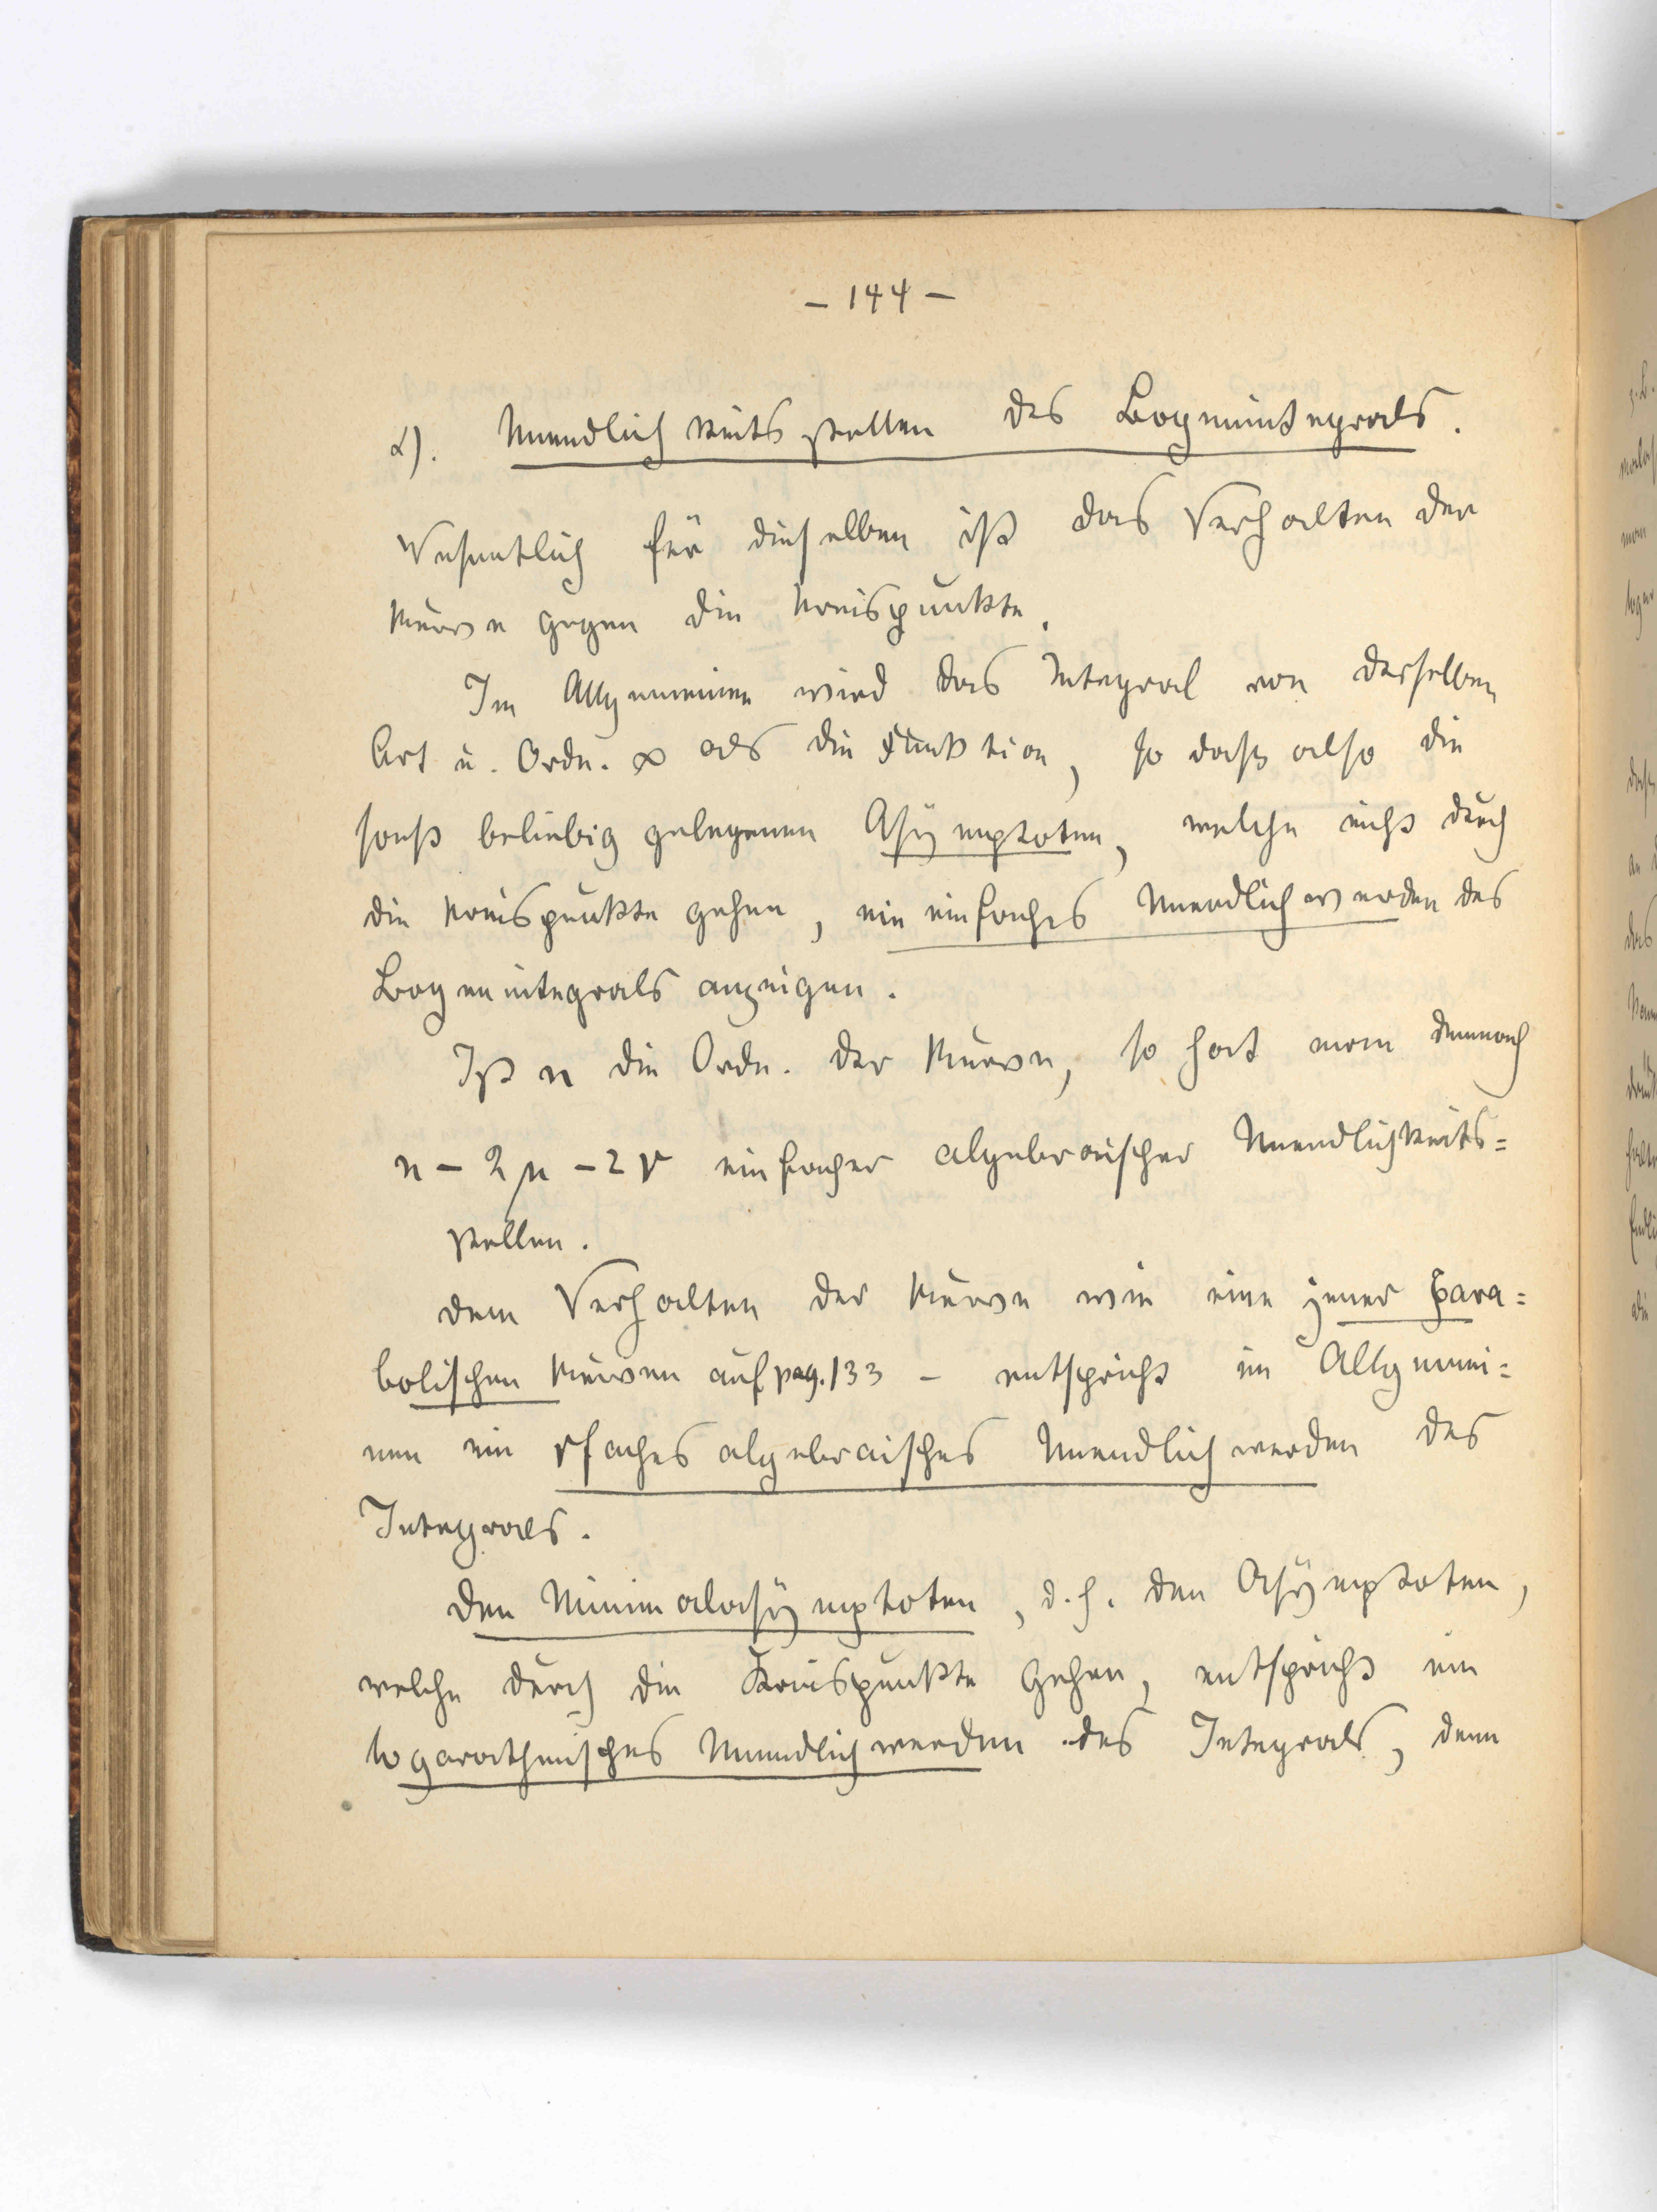 – 144 –
α). Unendlichkeitsstellen des Bogenintegrals.
Wesentlich für dieselben ist das Verhalten der
Kurve gegen die Kreispunkte.
Im Allgemeinen wird das Integral von derselben
Art u. Ordn. ∞ als die Funktion, so daß also die
sonst beliebig gelegenen Asymptoten, welche nicht durch
die Kreispunkte gehen, ein einfaches Unendlichwerden des
Bogenintegrals anzeigen.
Ist n die Ordn. der Kurve, so hat man demnach
n – 2μ – 2r einfacher algebraischer Unendlichkeits=
stellen.
Dem Verhalten der Kurve wie eine jener para=
bolischen Kurven auf pag. 133 – entspricht im Allgemei=
nen ein rfaches algebraisches Unendlichwerden des
Integrals.
Den Minimalasymptoten, d. h. den Asymptoten,
welche durch die Kreispunkte gehen, entspricht ein
logarathmisches Unendlichwerden des Integrals, denn